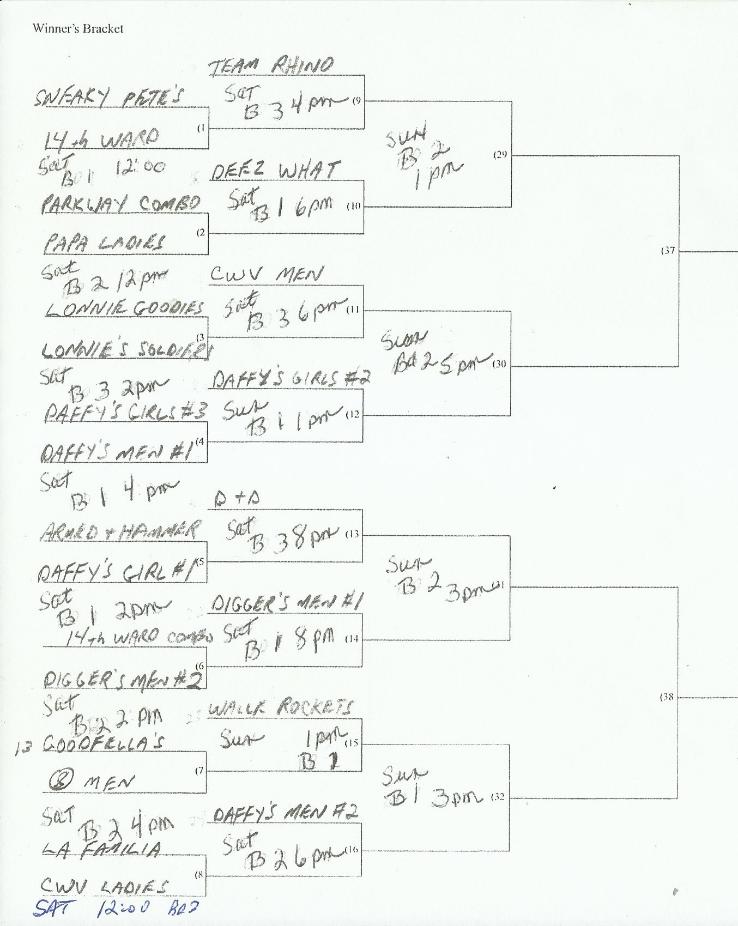 Winner's Bracket
TEAM RHINO
SNEAKY PETE'S
Sat
B 3 4pm (9
(1
14th WARD
Sun
B 2
1pm
(29
Sat
B 1 12:00
DEEZ WHAT
PARKWAY COMBO
Sat
B 1 6pm (10
(2
PAPA LADIES
(37
Sat
B 2 12pm
CWV MEN
LONNIE GOODIES
Sat
B 3 6pm (11
(3
LONNIE'S SOLDIERS
Sun
2 5pm (30
Sat
B 3 2pm
DAFFY'S GIRLS #2
DAFFY'S GIRLS #3
Sun
B 1 1pm (12
(4
DAFFY'S MEN #1
Sat
B 1 4pm
D + D
ARMED + HAMMER
Sat
B 3 8pm (13
(5
DAFFY'S GIRL #1
Sun
B 2 3pm
Sat
B 1 2pm
DIGGER'S MEN #1
14th WARD COMBO
Sat
B 1 8pm (14
(6
DIGGER'S MEN #2
(38
Sat
B 2 2 PM
WALLK ROCKETS
13 GOODFELLA'S
Sun 1pm
B (15
(7
8 MEN
Sun
B 1 3pm (32
Sat
B 2 4pm
DAFFY'S MEN #2
LA FAMILIA
Sat
B 2 6pm (16
(8
CWV LADIES
SAT 12:00